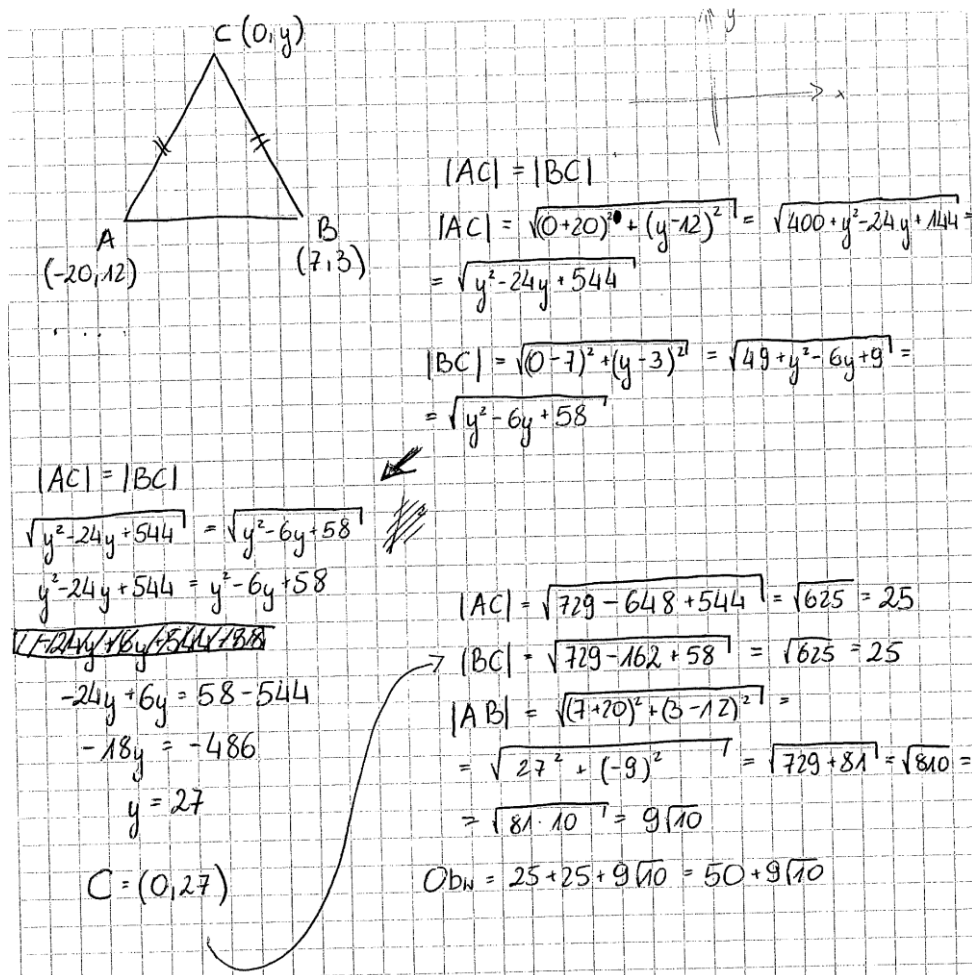 C (0,y)
y
x
A
(-20,12)
B
(7,3)
. . . .
|AC| = |BC|
|AC| = √(0+20)² + (y-12)² = √400+y²-24y+144 =
= √y²-24y+544
|BC| = √(0-7)² + (y-3)² = √49+y²-6y+9 =
= √y²-6y+58
|AC| = |BC|
√y²-24y+544 = √y²-6y+58
y²-24y+544 = y²-6y+58
-24y+6y = 58-544
-18y = -486
y = 27
C = (0,27)
|AC| = √729-648+544 = √625 = 25
|BC| = √729-162+58 = √625 = 25
|AB| = √(7+20)² + (3-12)² =
= √27² + (-9)² = √729+81 = √810 =
= √81·10 = 9√10
Obw = 25+25+9√10 = 50+9√10